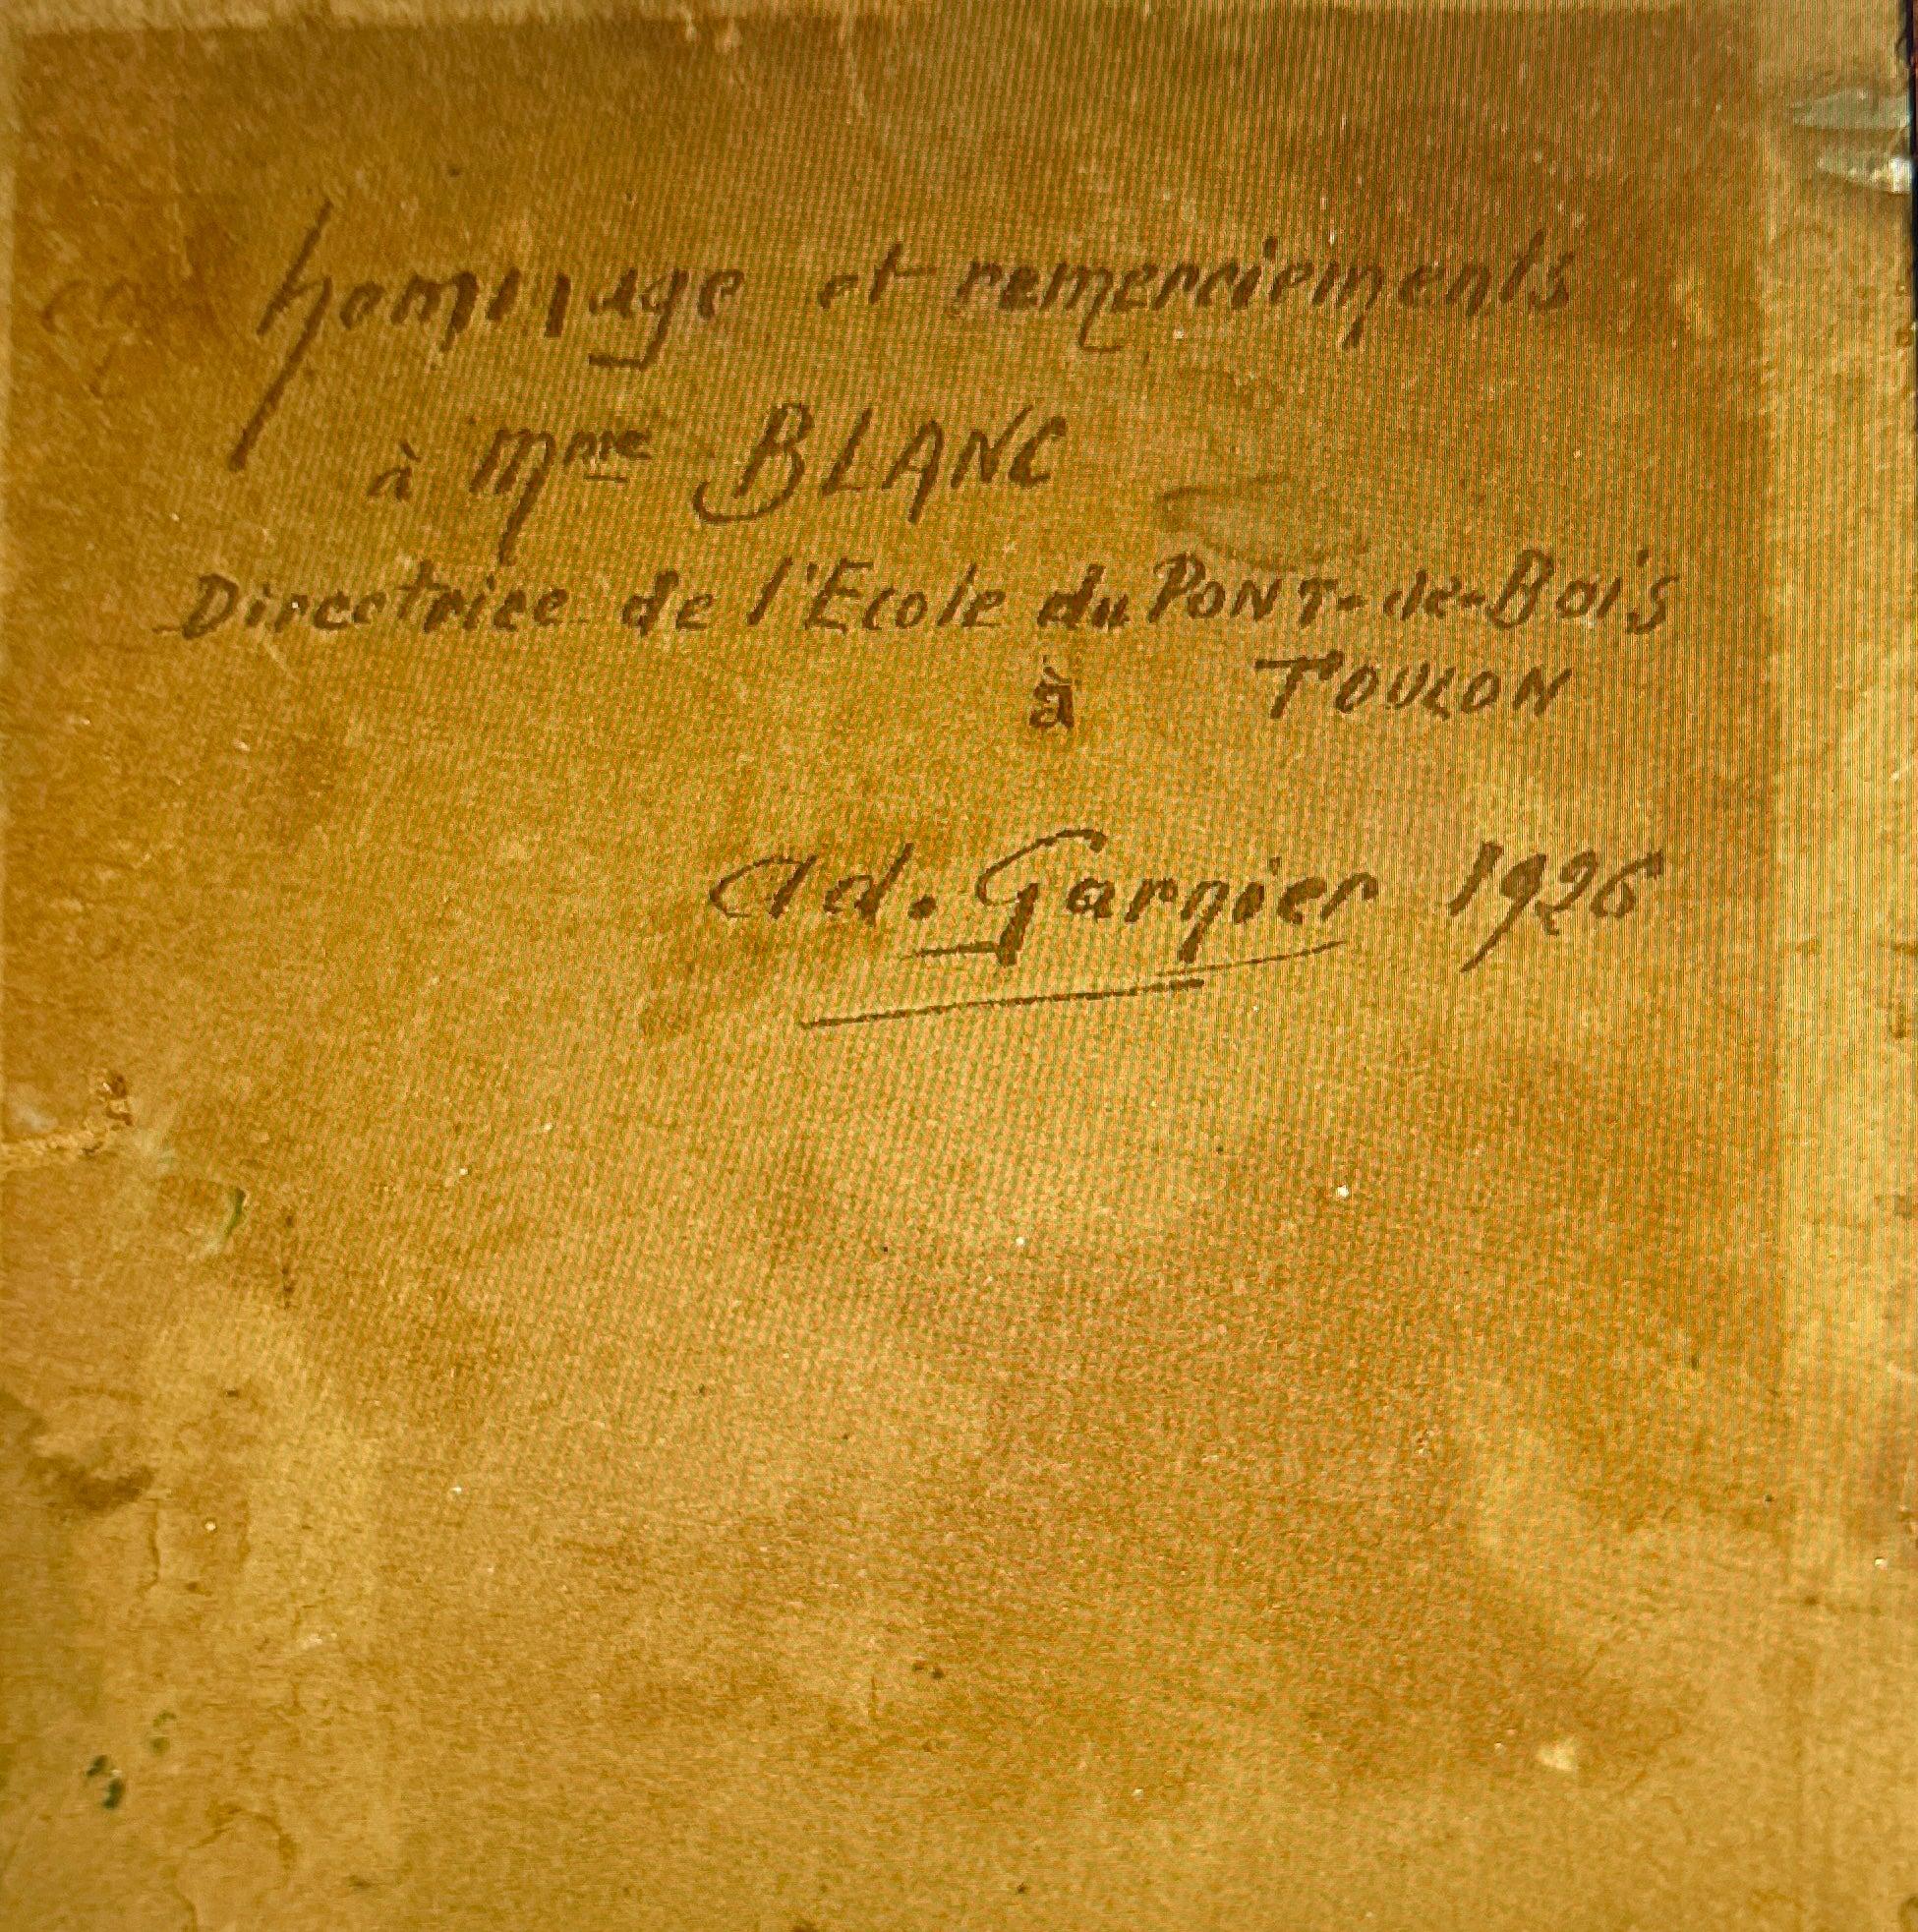 hommage et remerciements
à Mme BLANC
Directrice de l'Ecole du PONT-de-Bois
à TOULON
Ad. Garnier 1926